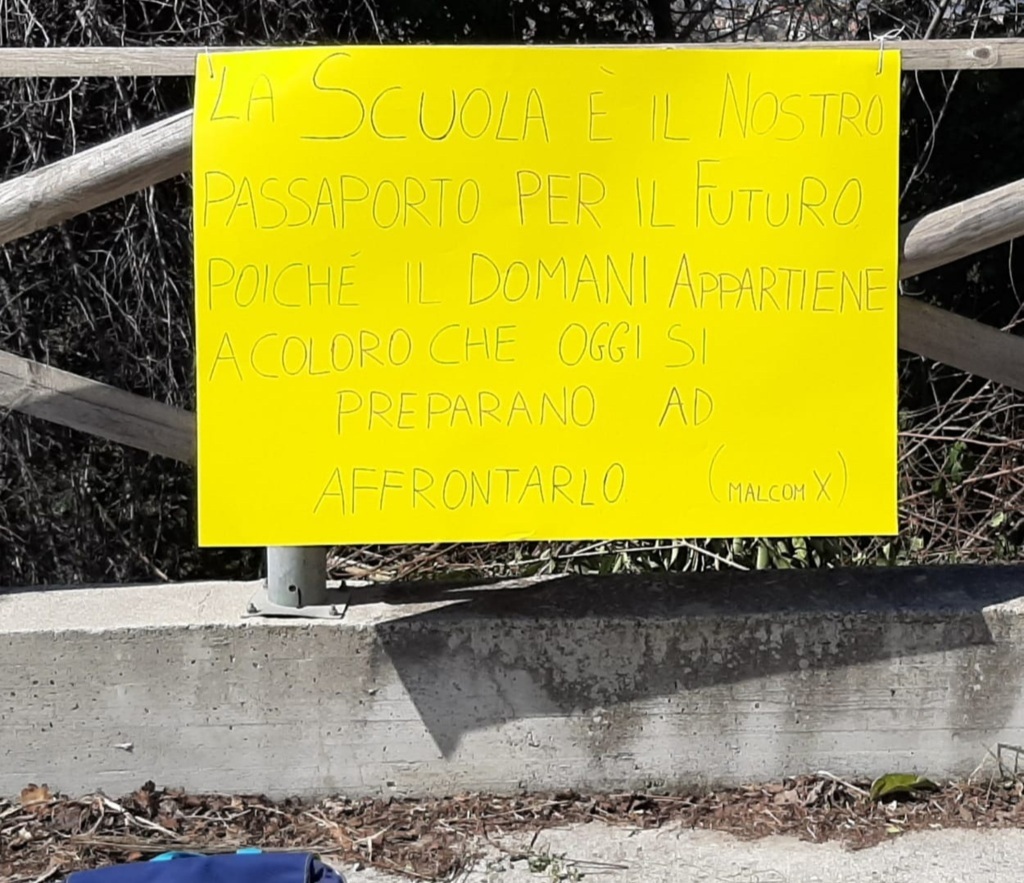 LA SCUOLA È IL NOSTRO
PASSAPORTO PER IL FUTURO.
POICHÉ IL DOMANI APPARTIENE
A COLORO CHE OGGI SI
PREPARANO AD
AFFRONTARLO. (MALCOM X)